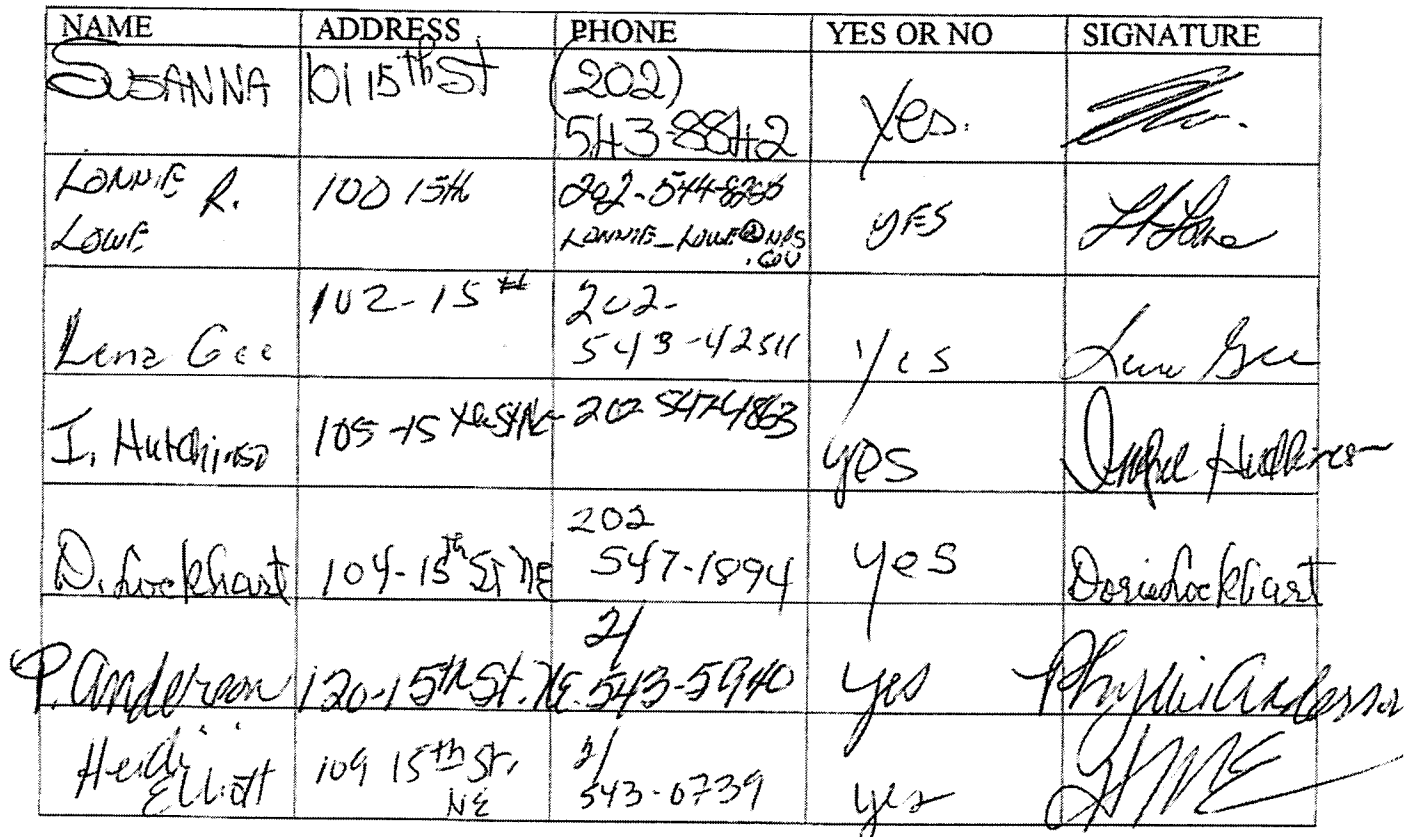 NAME ADDRESS PHONE YES OR NO SIGNATURE
SUSANNA 101 15th St (202)
543-8842 Yes.
LONNIE R. 100 15th 202-544-8286 YES
LOWE LONNIE_LOWE@NPS
.GOV
102-15th 202-
Lena Gee 543-4251 Yes Lena Gee
I. Hutchinso 105-15 202 547-4863 yes
202
D. Lockhart 104-15th St NE 547-1894 yes Doris Lockhart
2/
P. Anderson 120-15th St. NE. 543-5940 yes Phyllis Anderson
Heidi 109 15th St, 2/
Elliott NE 543-0739 yes HME